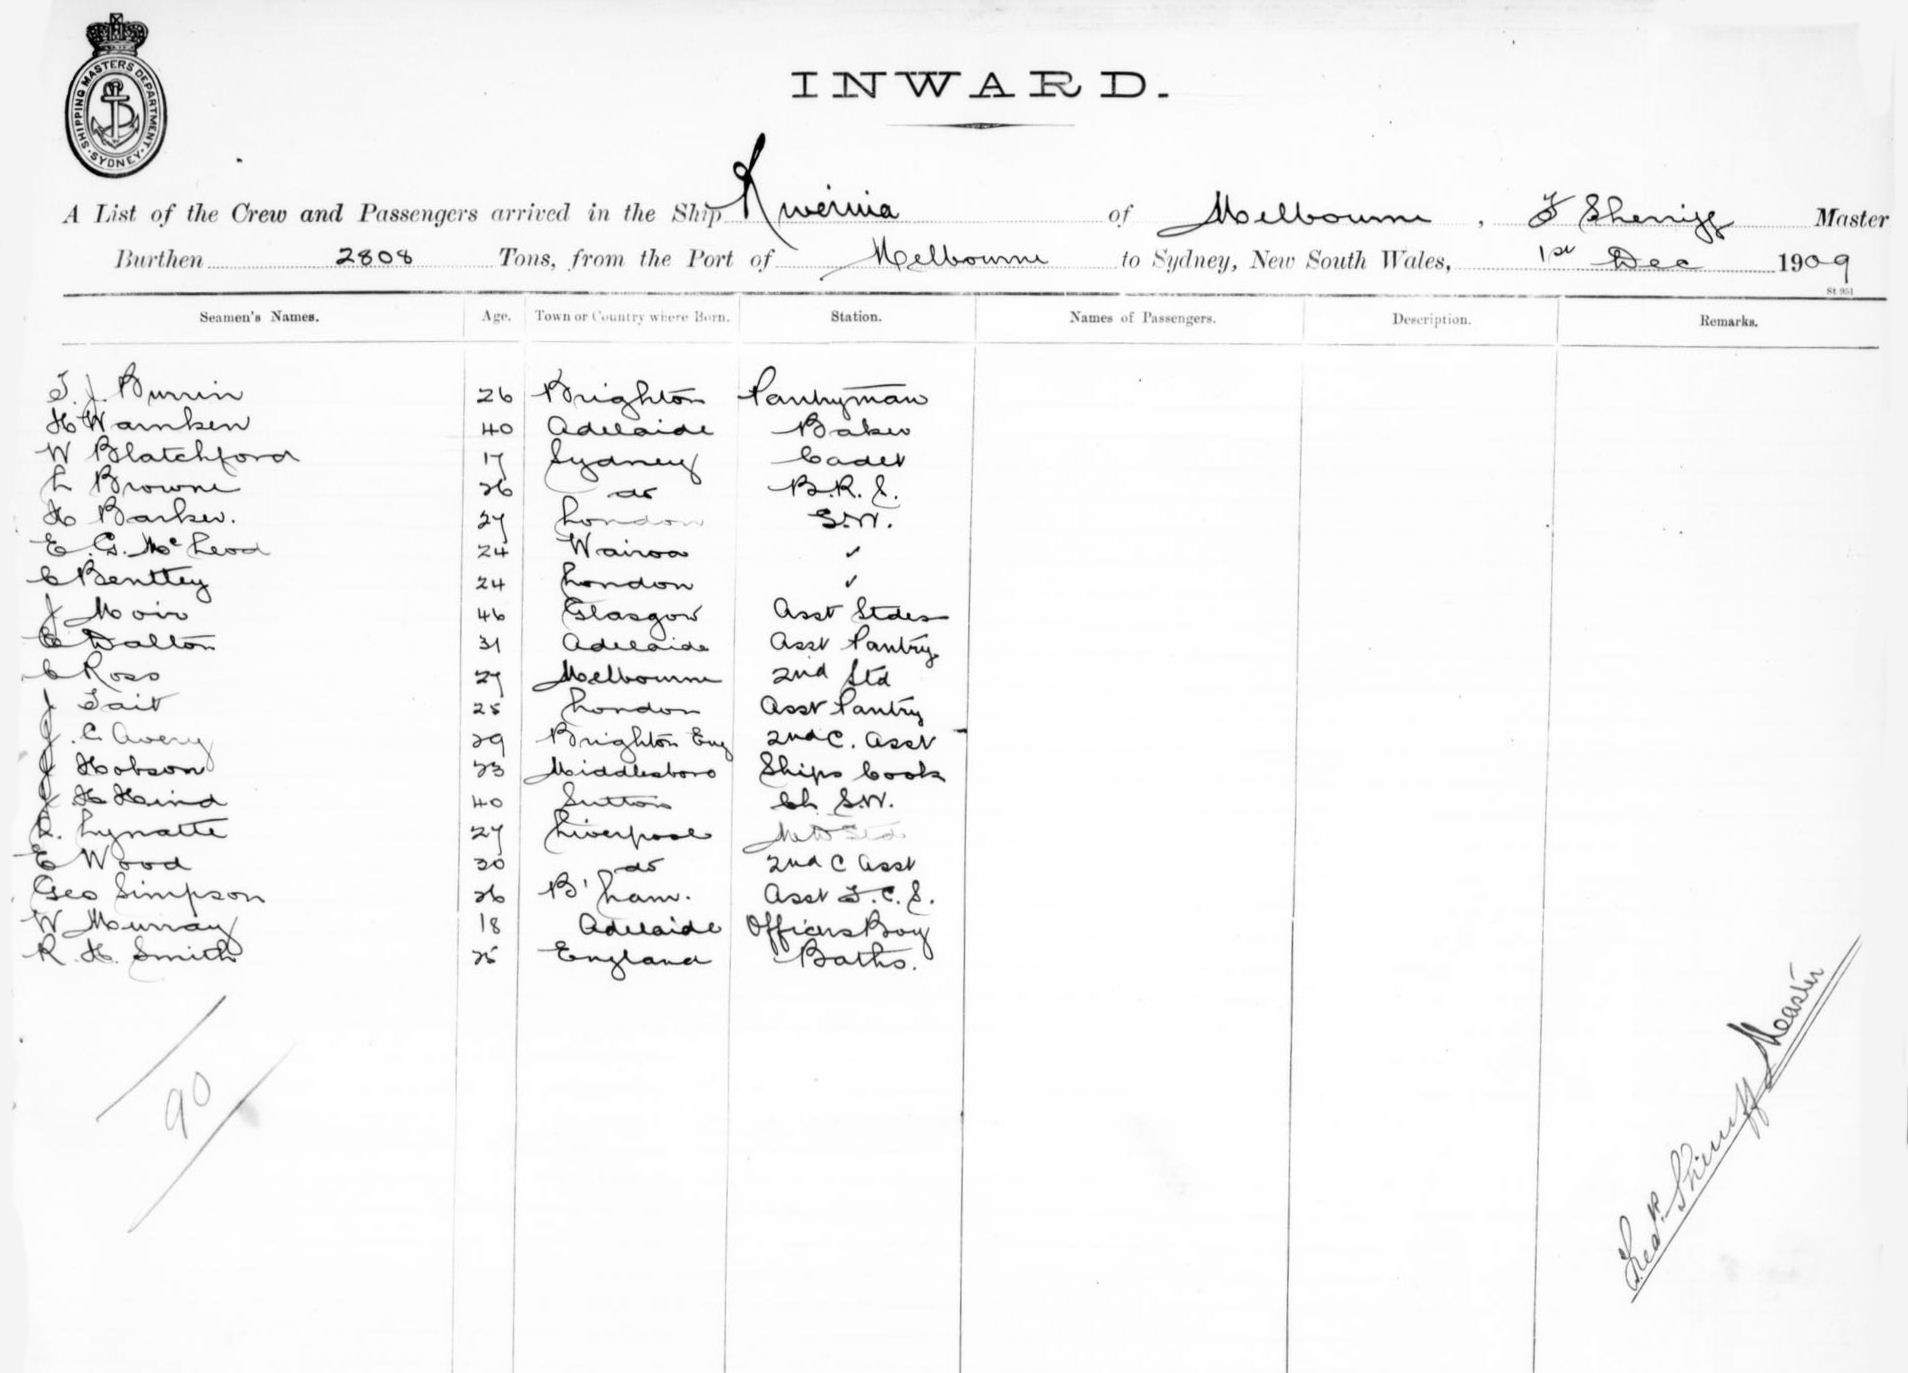 SHIPPING MASTERS DEPARTMENT. SYDNEY.
INWARD.
A List of the Crew and Passengers arrived in the Ship Riverina of Melbourne, F Sherriff Master
Burthen 2808 Tons, from the Port of Melbourne to Sydney, New South Wales, 1st Dec 1909
St 951
Seamen's Names. Age. Town or Country where Born. Station. Names of Passengers. Description. Remarks.
T. J. Burrin 26 Brighton Pantryman
H Warnken 40 Adelaide Baker
W Blatchford 17 Sydney Cadet
L Browne 26 do B.R.S.
H Barker. 27 London S.W.
E. G. McLeod 24 Wairoa ✓
C Benttey 24 London ✓
J Moir 46 Glasgow Asst Stdes
C Dalton 31 Adelaide Asst Pantry
C Ross 27 Melbourne 2nd Std
J Tait 25 London Asst Pantry
J. C. Avery 29 Brighton Eng 2nd C. Asst
J Hobson 23 Middlesboro Ships Cook
J H Hind 40 Sutton Ch. S.W.
R. Lynatte 27 Liverpool Std
E Wood 30 do 2nd C Asst
Geo Simpson 26 B'ham. Asst F.C.S.
W Murray 18 Adelaide Officers Boy
R. H. Smith 25 England Baths.
90
Fredk. Sherriff Master